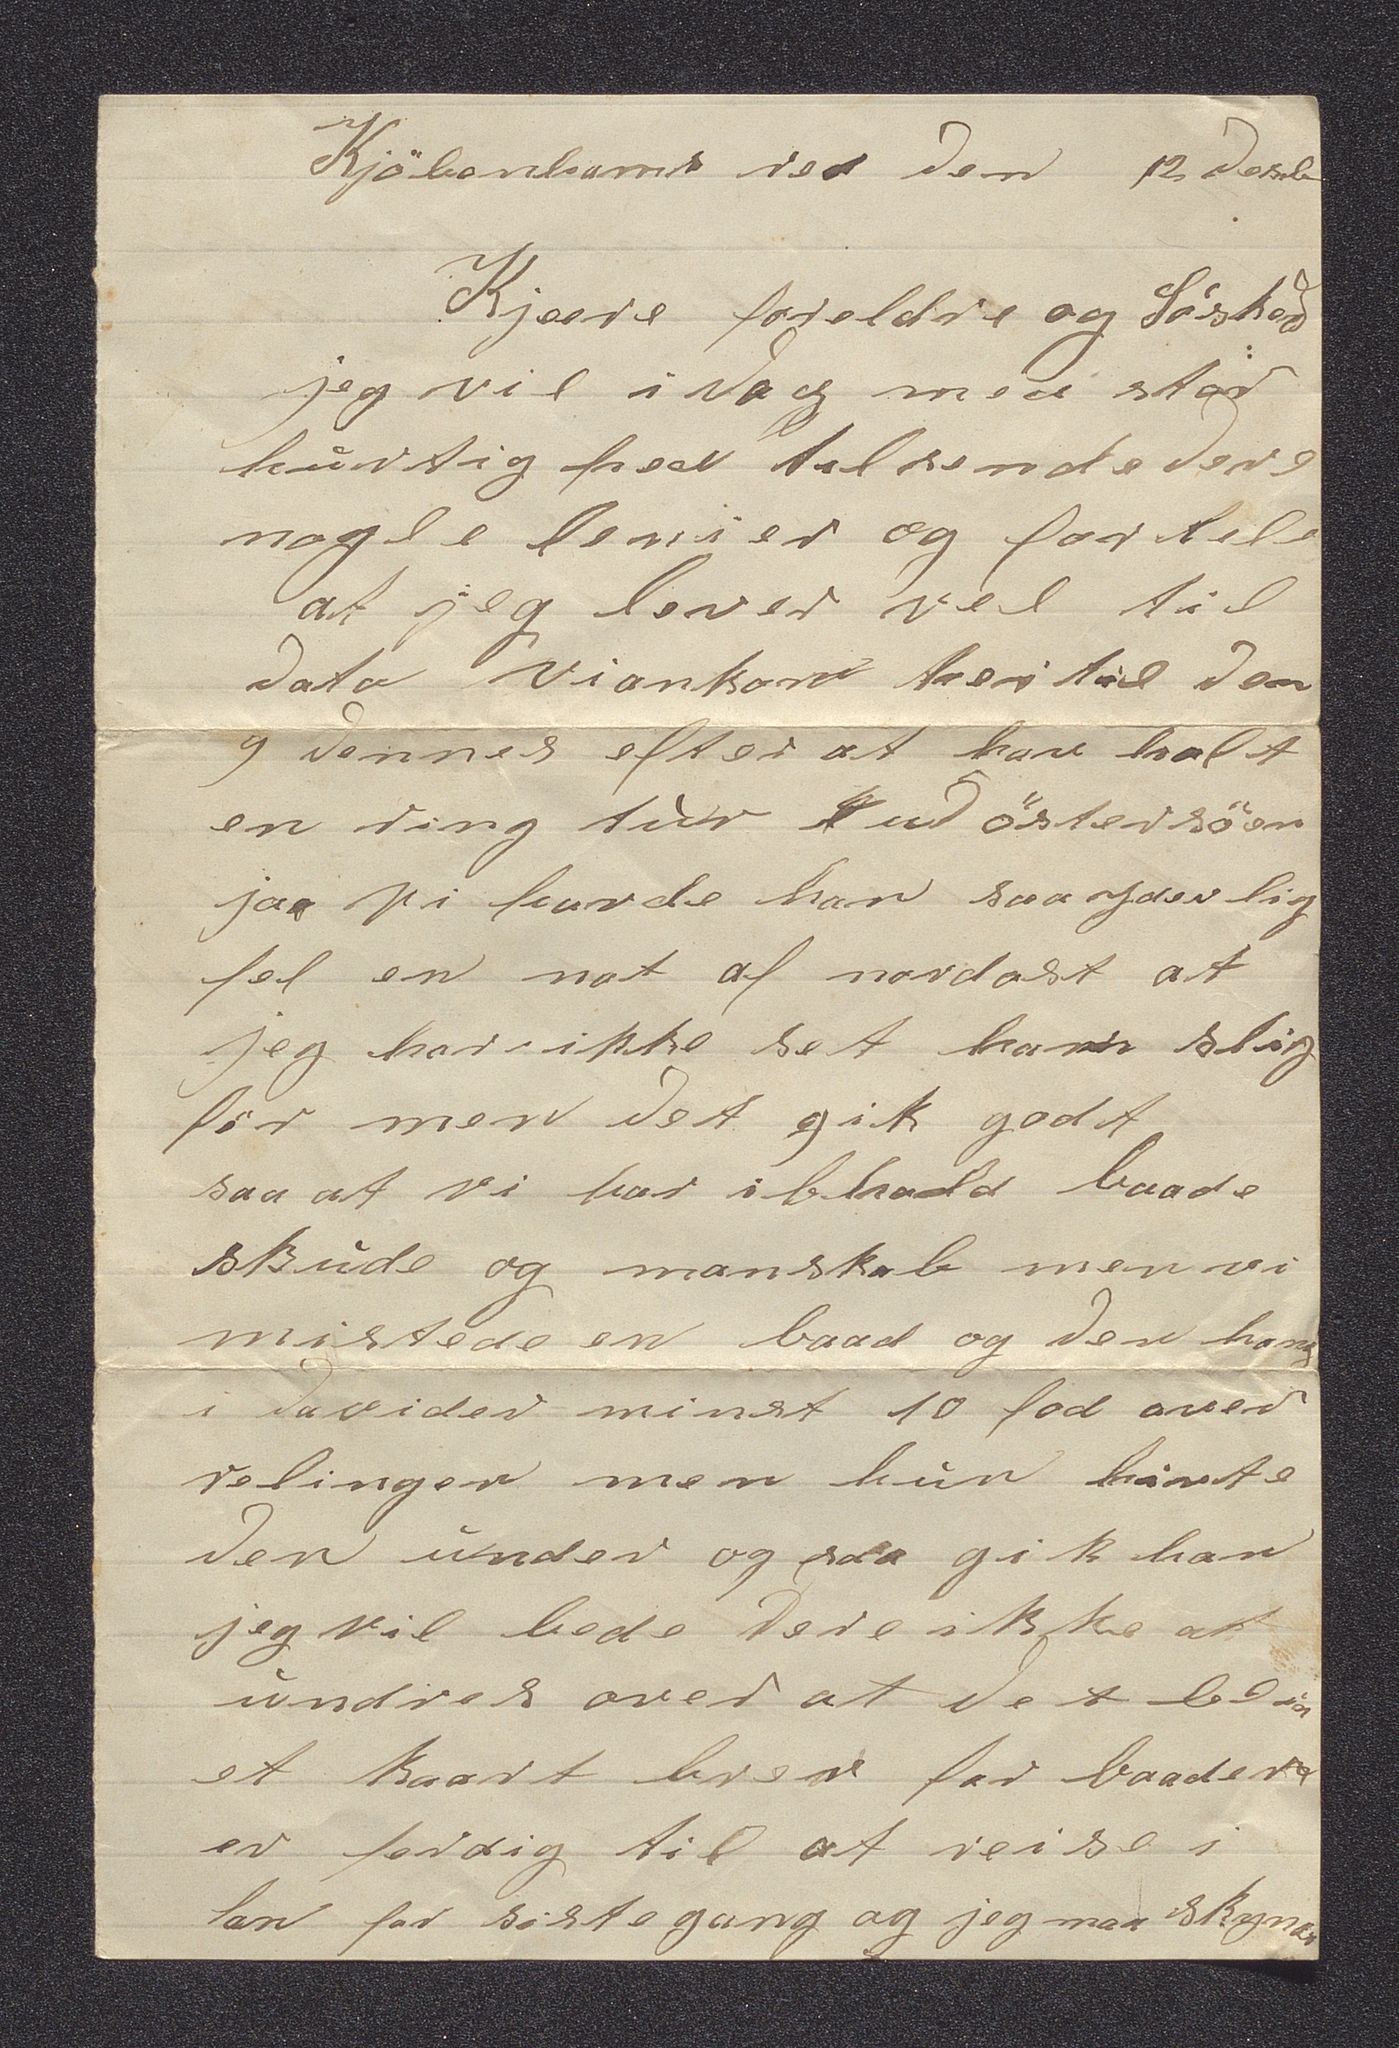 Kjöbenhamns red den 12 desb
Kjære foreldre og Söskend
jeg vil idag med stör
hùrtig hed tilsende dere
nogle lenier og fortele
at jeg lever vel til
dato vi ankom her til den
9 dennes efter at hav halt
en ring tùr i ud östersöen
jaa vi havde han saa yderlig
fel en nat af nordost at
jeg har ikke set han slig
för men det gik godt
saa at vi har ibhald baade
skùde og manskab men vi
mistede en baad og den hang
i davider minst 10 fod over
relingen men hùn hivte
den ùnder og saa gik han
jeg vil bede dere ikke at
ùndres over at det blir
et kaart brev for baaden
er ferdig til at reise i
lan for siste gang og jeg maa skynde